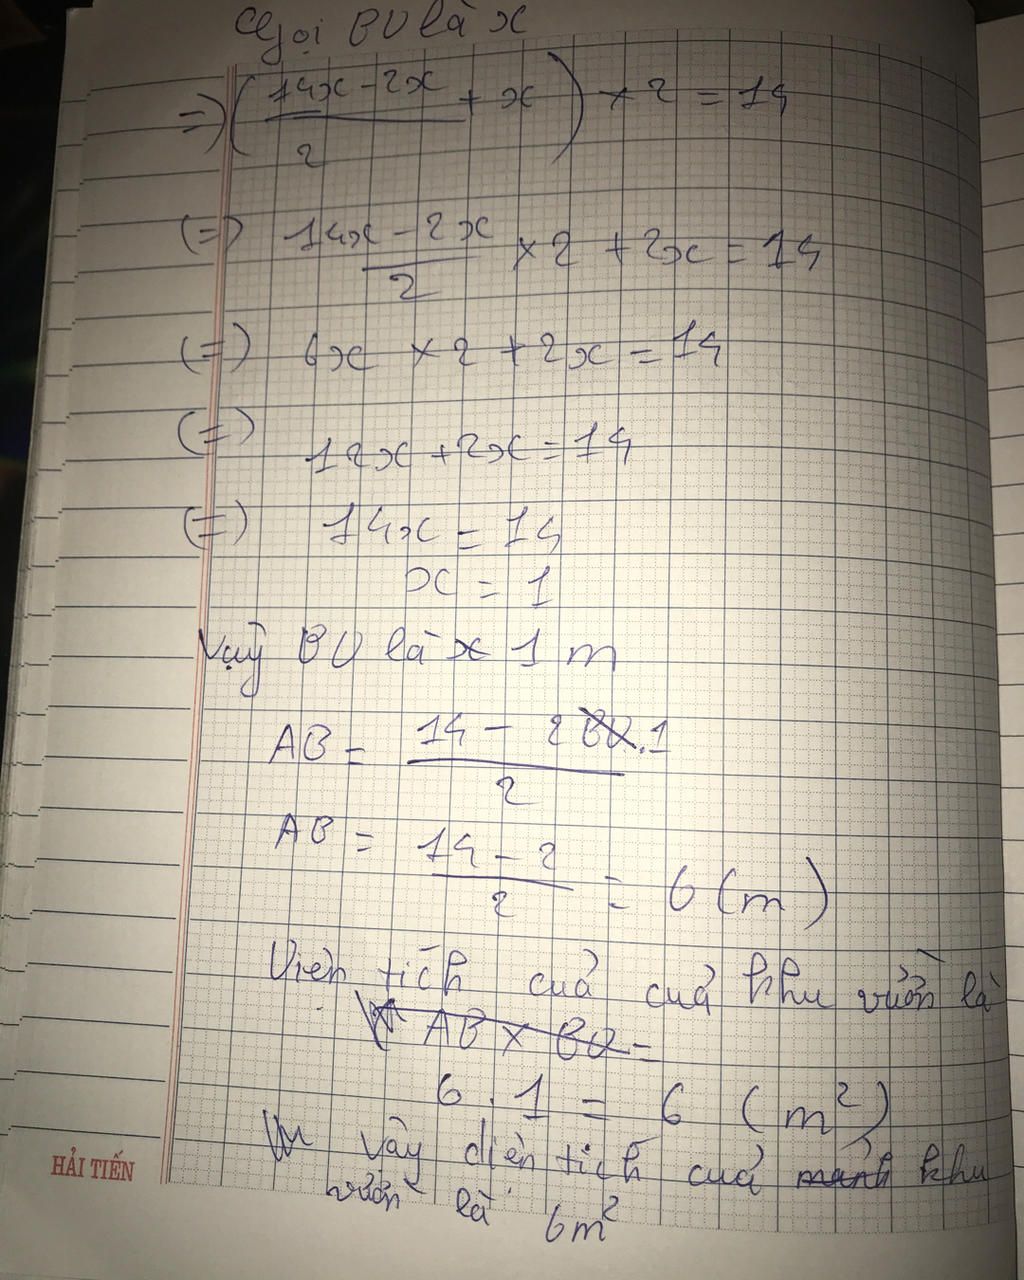 Gọi BD là x
=> ( (14x - 2x)/2 + x ) × 2 = 14
(=) (14x - 2x)/2 × 2 + 2x = 14
(=) 6x × 2 + 2x = 14
(=) 12x + 2x = 14
(=) 14x = 14
x = 1
Vậy BD là x 1 m
AB = (14 - 2 BD.1)/2
AB = (14 - 2)/2 = 6 (m)
Diện tích của của khu vườn là
AB × BD =
6 . 1 = 6 (m²)
Vậy diện tích của mảnh khu
vườn là 6m²
HẢI TIẾN